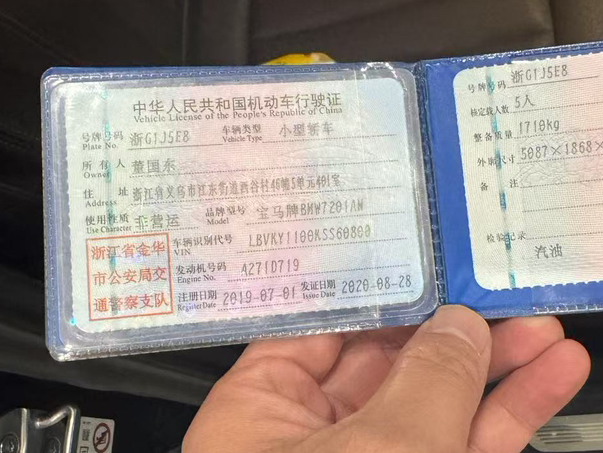 中华人民共和国机动车行驶证
Vehicle License of the People's Republic of China
号牌号码 浙G1J5E8 车辆类型 小型轿车
Plate No. Vehicle Type
所有人 董国东
Owner
住址 浙江省义乌市江东街道西谷村46幢5单元401室
Address
使用性质 非营运 品牌型号 宝马牌BMW7201AM
Use Character Model
浙江省金华
市公安局交
通警察支队
车辆识别代号 LBVKY1100KSS60800
VIN
发动机号码 A271D719
Engine No.
注册日期 2019-07-01 发证日期 2020-08-28
Register Date Issue Date
号牌号码 浙G1J5E8
核定载人数 5人
整备质量 1710kg
外廓尺寸 5087×1868×
备注
检验记录
汽油